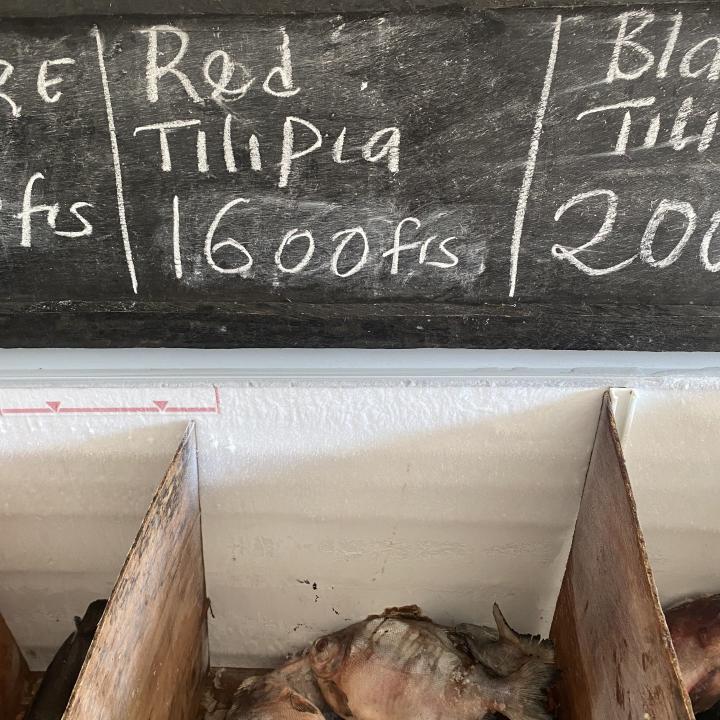 RE
frs
Red
TiliPia
1600frs
Bla
Tili
200